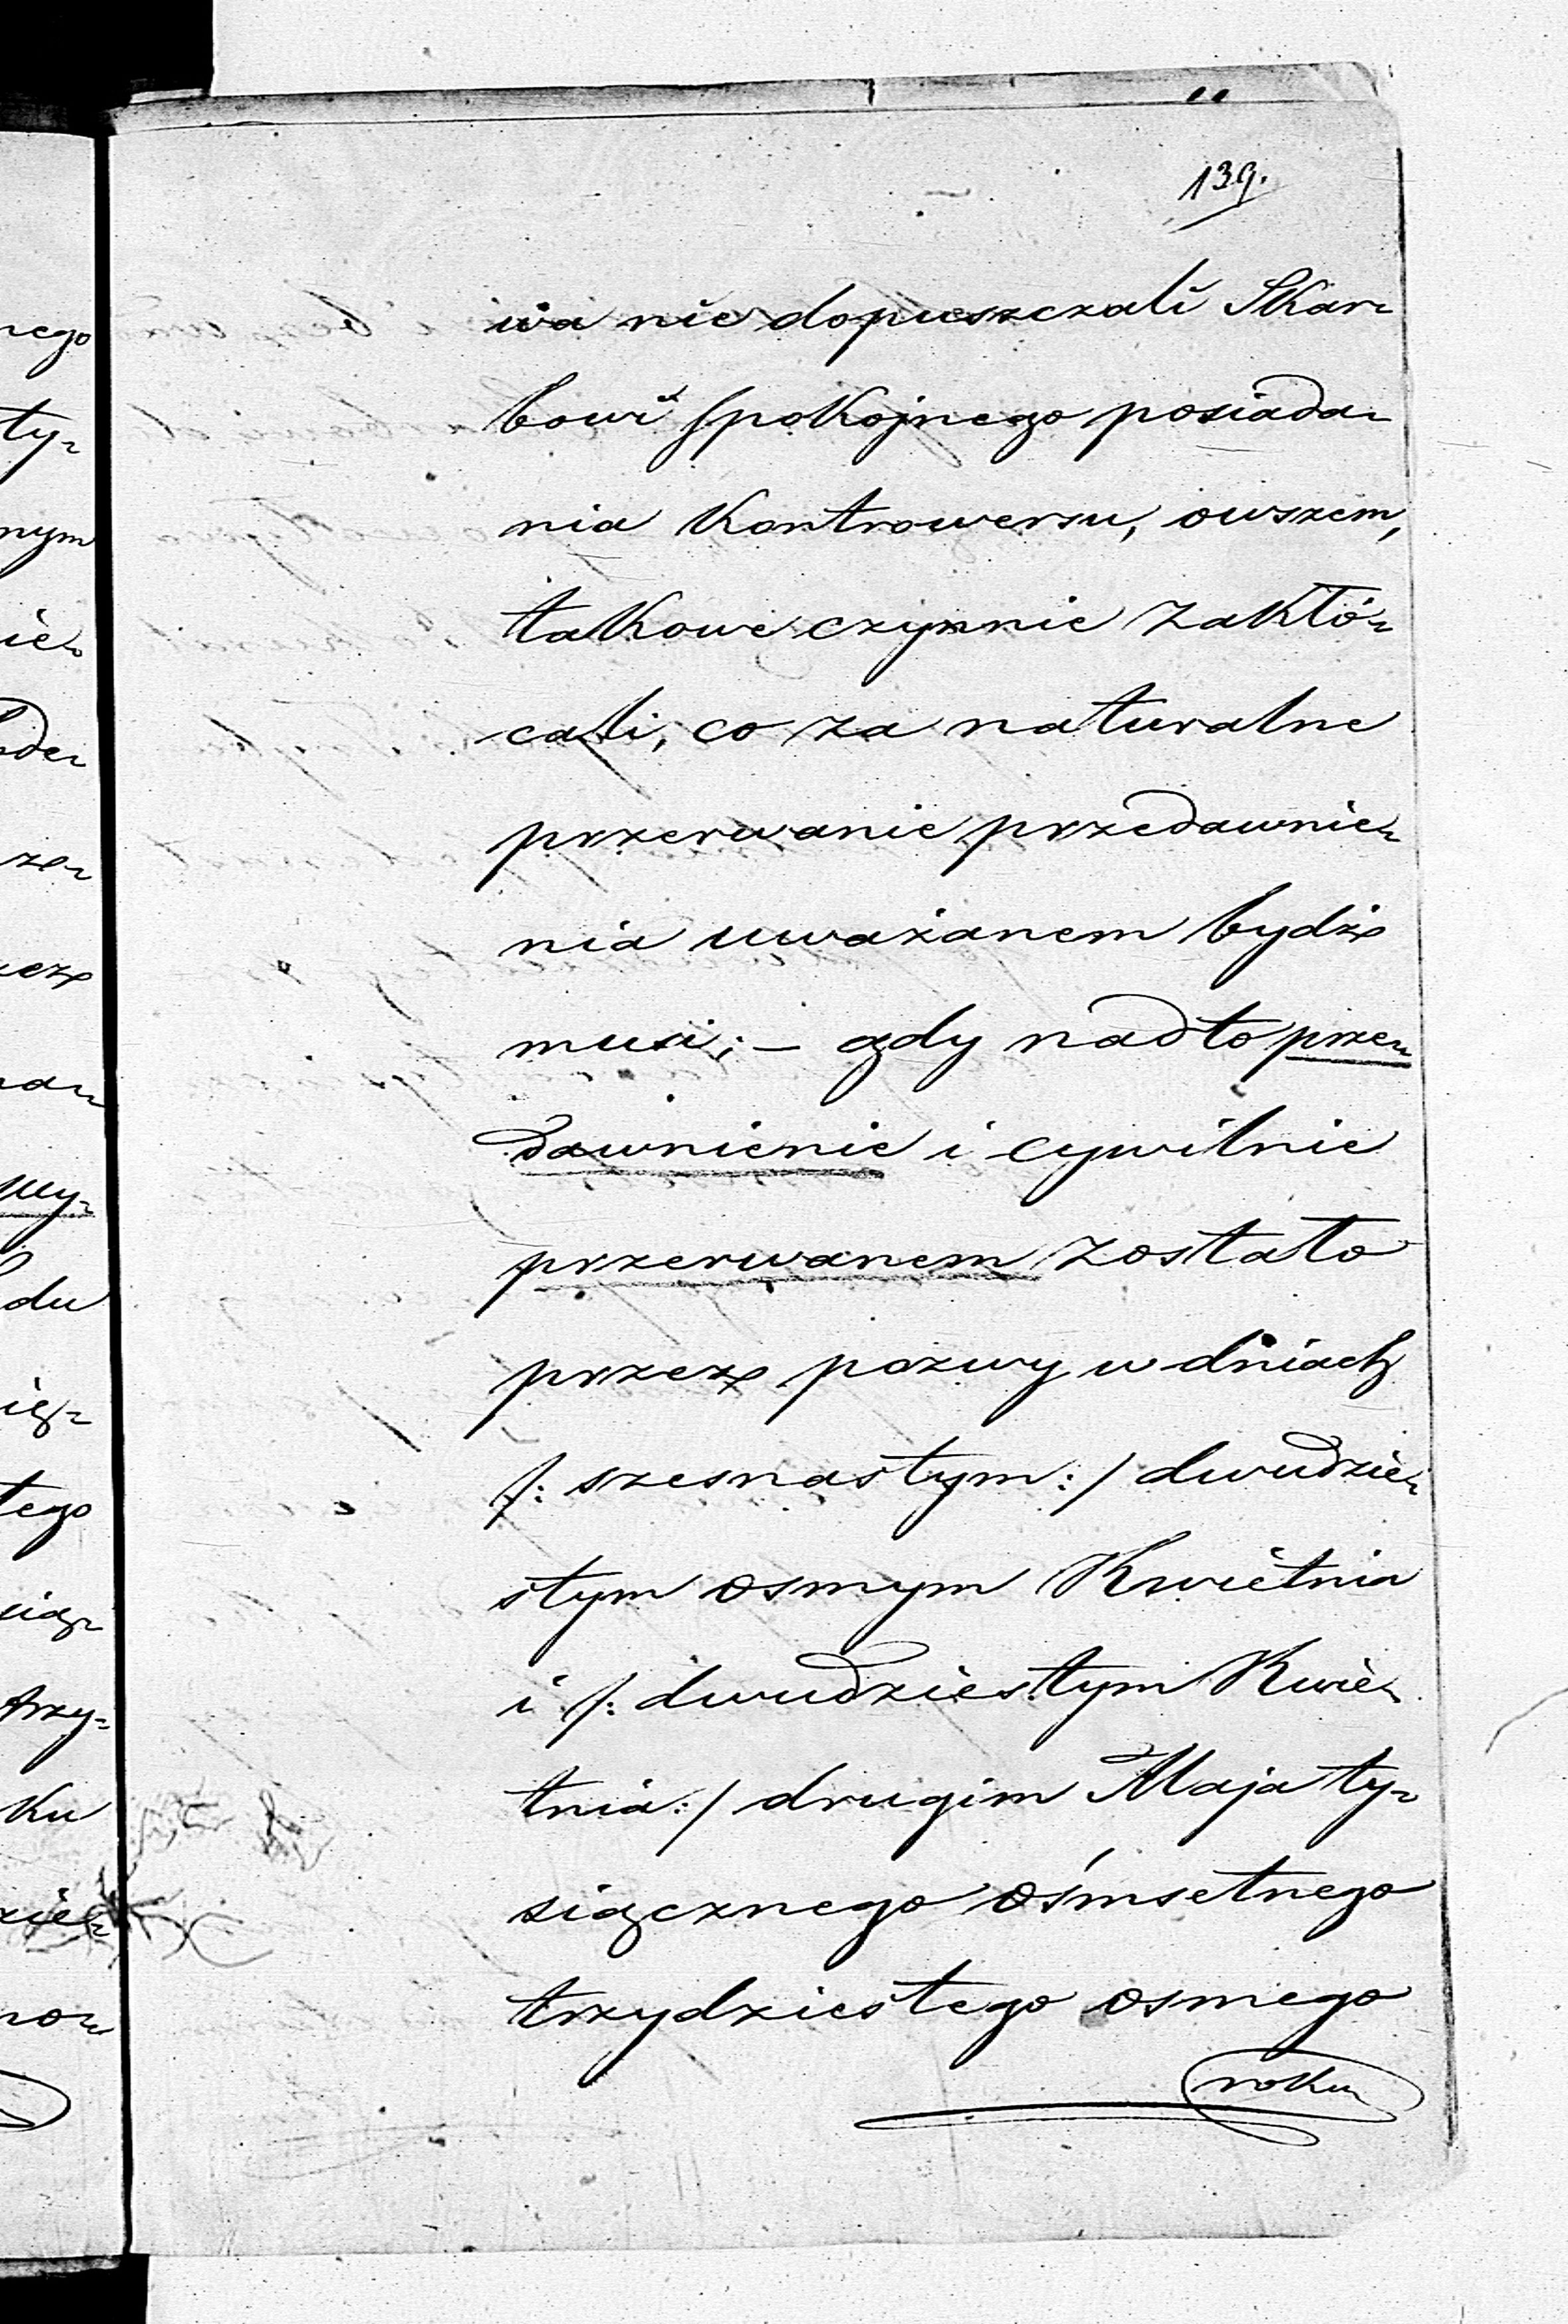 139.
wa nie dopuszczali Skar-
bowi spokojnego posiada-
nia Kontrowersu, owszem,
takowe czynnie zakłó-
cali, co za naturalne
przerwanie przedawnie-
nia uważanem bydź
musi; – gdy nadto prze-
dawnienie i cywilnie
przerwanem zostało
przez pozwy w dniach
/: szesnastym :/ dwudzie-
stym osmym Kwietnia
i /: dwudziestym Kwie-
tnia :/ drugim Maja ty-
siącznego ośmsetnego
trzydziestego osmego
roku